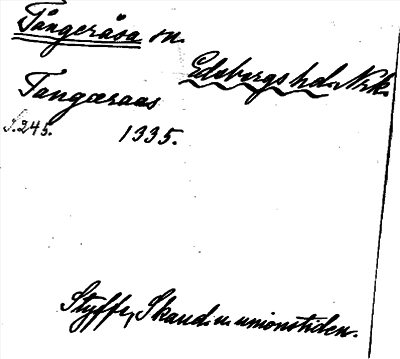 Tångeråsa sn.
Edsbergs hd. Nrk.
Tangæraas
s. 245. 1335.
Styffe, Skand. u. unionstiden.